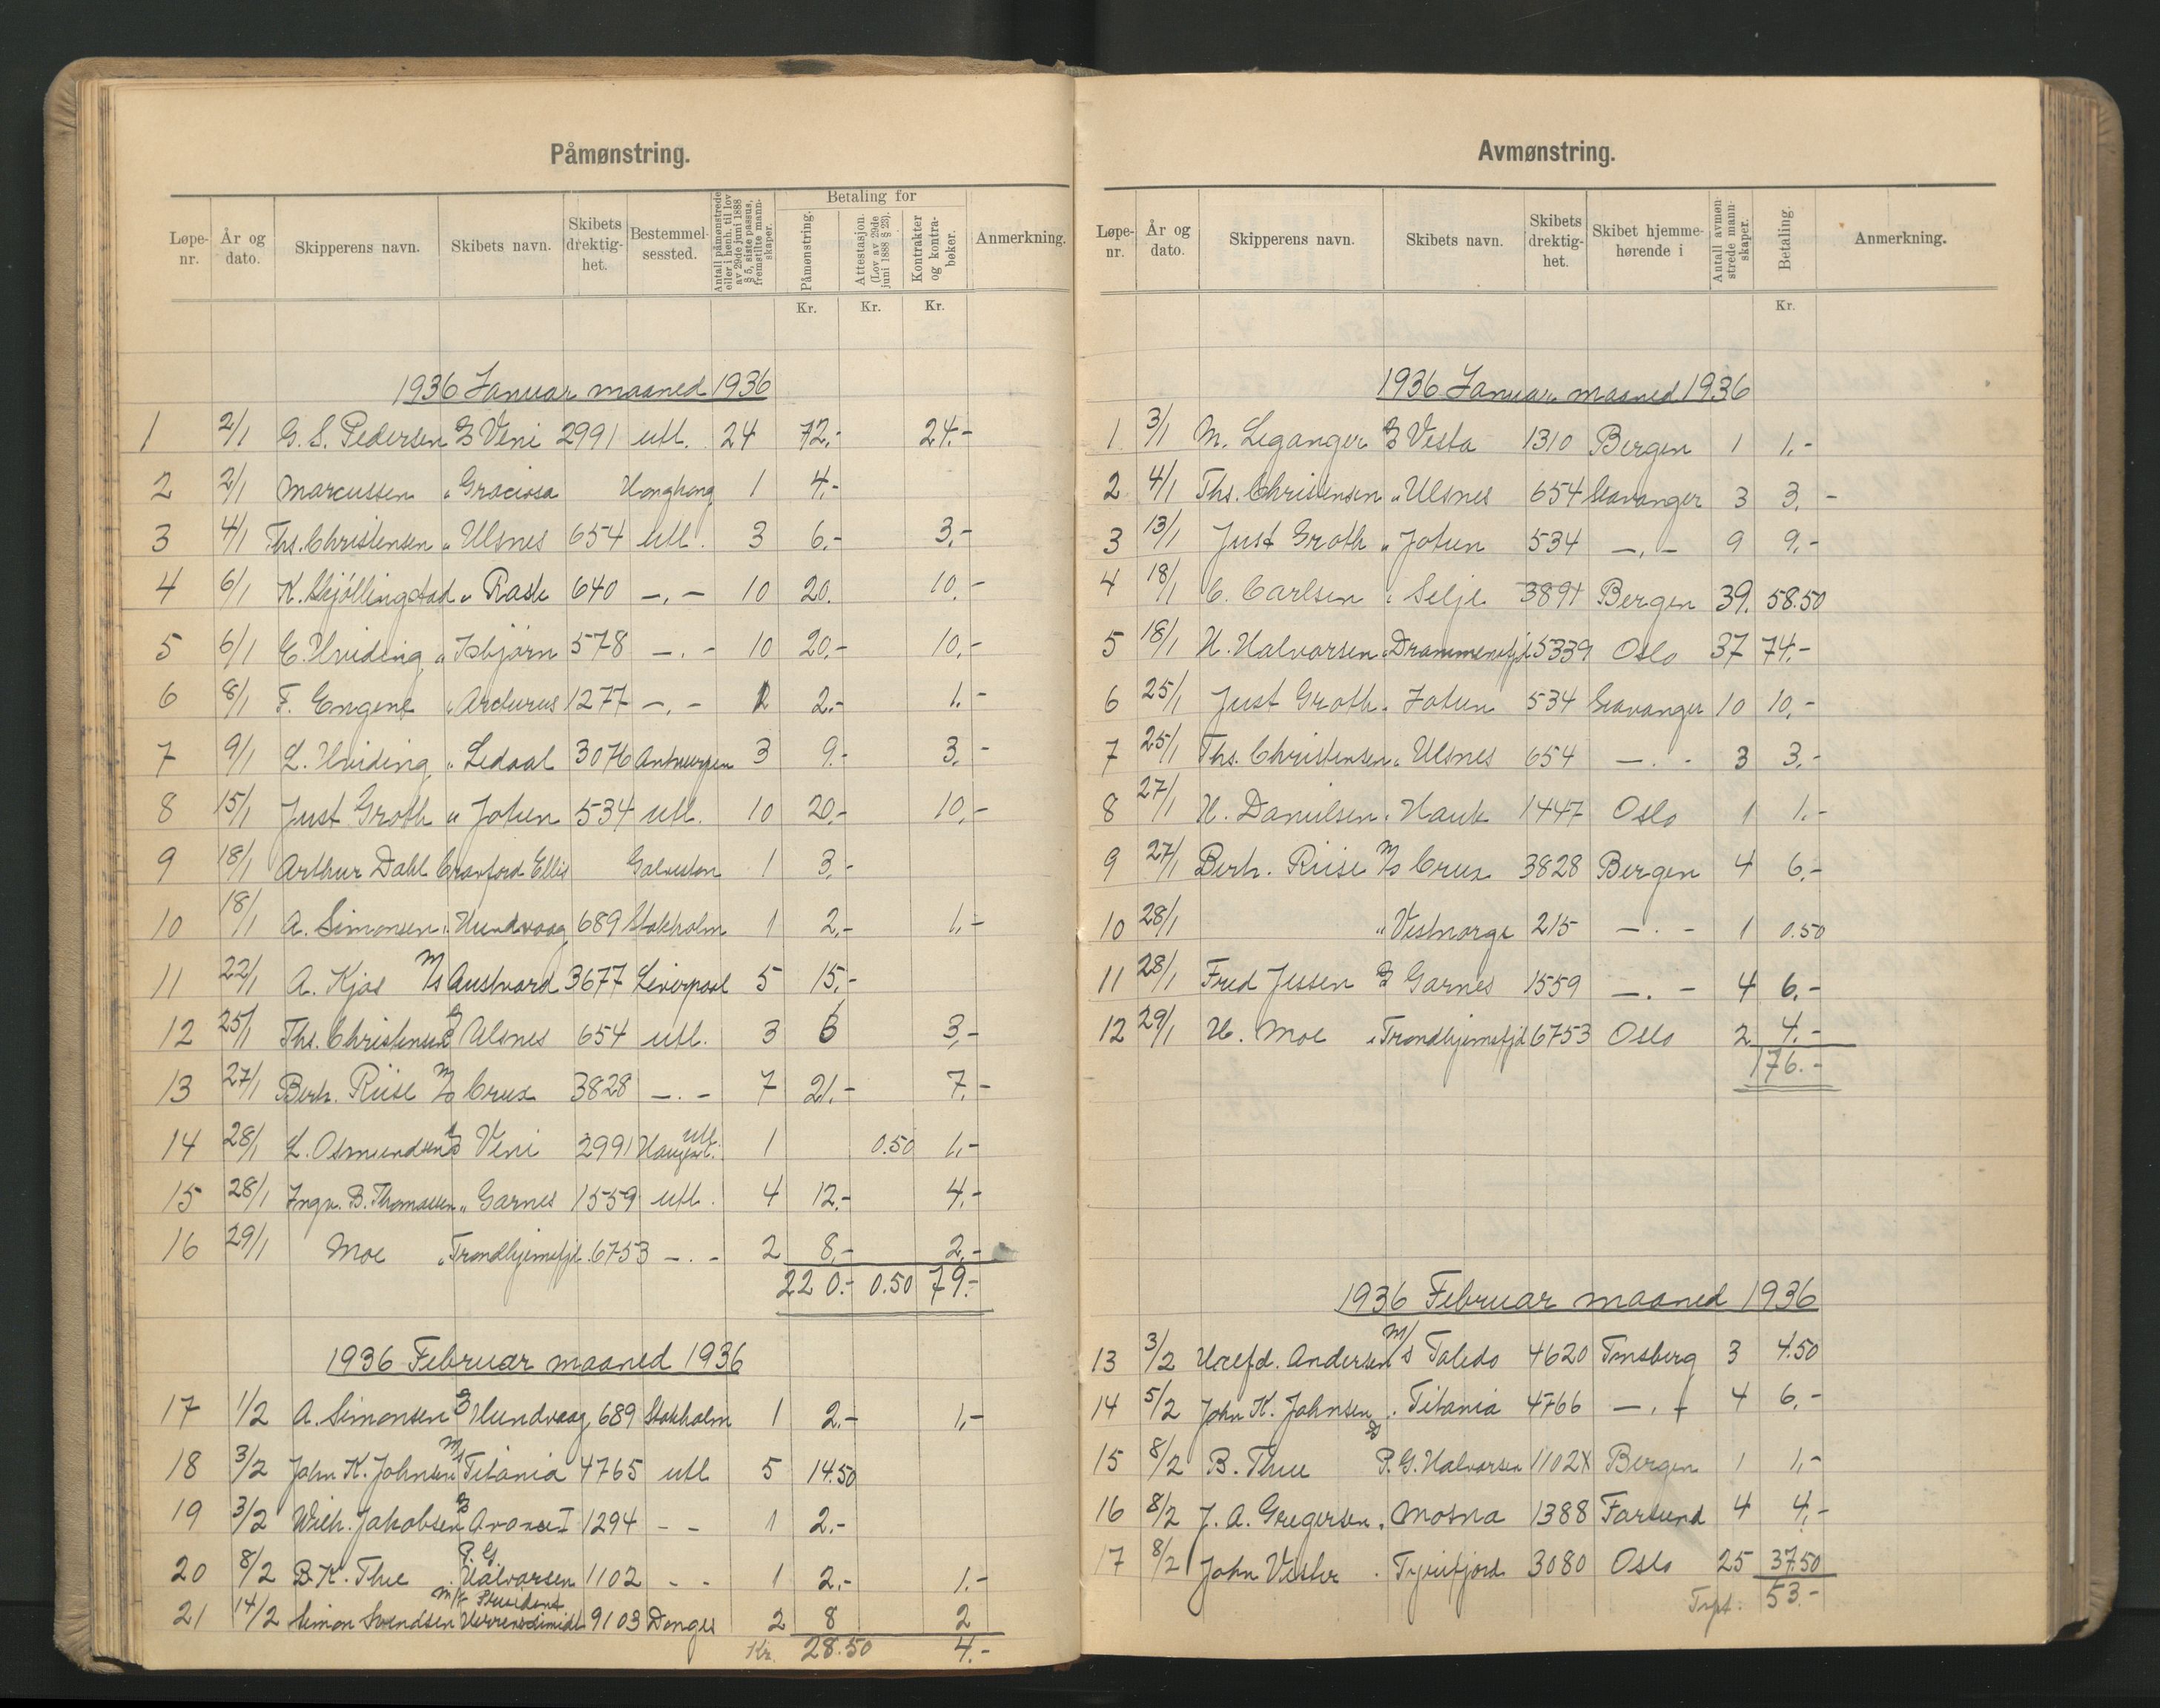 Påmønstring.
Løpe-nr. År og dato. Skipperens navn. Skibets navn. Skibets drektig-het. Bestemmel-sessted. Antall påmønstrede eller i henh. til lov av 29de juni 1888 § 5, siste passus, fremstilte mann-skaper. Betaling for Påmønstring. Attestasjon. (Lov av 29de juni 1888 § 23). Kontrakter og kontra-bøker. Anmerkning.
Kr. Kr. Kr.
1936 Januar maaned 1936
1 2/1 G. S. Pedersen D/S Veni 2991 utl. 24 72.- 24.-
2 2/1 Marcussen " Graciosa Hongkong 1 4.-
3 4/1 Ths. Christensen " Ulsnes 654 utl. 3 6.- 3.-
4 6/1 K. Skjøllingstad " Rask 640 -.- 10 20. 10.-
5 6/1 E. Hviding " Isbjørn 578 -.- 10 20.- 10.-
6 8/1 F. Engene " Arcturus 1277 -.- 2.- 1.-
7 9/1 L. Hviding " Ledaal 3076 Antwerpen 3 9.- 3.-
8 15/1 Just Groth " Jotun 534 utl. 10 20.- 10.-
9 18/1 Arthur Dahl Cranford Ellis Galveston 1 3.-
10 18/1 A. Simonsen " Hundvaag 689 Stokholm 1 2.- 1.-
11 22/1 A. Kjos M/S Austvard 3677 Liverpool 5 15.-
12 25/1 Ths. Christensen D/S Ulsnes 654 utl. 3 6 3.-
13 27/1 Berh. Riise M/S Crux 3828 -.- 7 21.- 7.-
14 28/1 L. Osmundsen D/S Veni 2991 utl. 1 0.50 1.-
15 28/1 Ingv. B. Thomassen " Garnes 1559 utl. 4 12.- 4.-
16 29/1 Moe " Trondhjemsfjd. 6753 -.- 2 8.- 2.-
220.- 0.50 79.-
1936 Februar maaned 1936
17 1/2 A. Simonsen D/S Hundvaag 689 Stokholm 1 2.- 1.-
18 3/2 John K. Johnsen M/S Titania 4765 utl 5 14.50
19 3/2 Wilh. Jakobsen D/S Avance I 1294 - - 1 2.-
20 8/2 B. K. Thue P. G. Halvorsen 1102 - - 1 2.- 1.-
21 14/2 Simon Svendsen 9103 Donges 2 8 2
Kr. 28.50 4.-
Avmønstring.
Løpe-nr. År og dato. Skipperens navn. Skibets navn. Skibets drektig-het. Skibet hjemme-hørende i Antall avmøn-strede mann-skaper. Betaling. Anmerkning.
Kr.
1936 Januar maaned 1936
1 3/1 M. Leganger D/S Vesta 1310 Bergen 1 1.-
2 4/1 Ths. Christensen " Ulsnes 654 Stavanger 3 3.-
3 13/1 Just Groth " Jotun 534 -.- 9 9.-
4 18/1 C. Carlsen " Selje 3891 Bergen 39. 58.50
5 18/1 H. Halvorsen " Drammensfjd 5339 Oslo 37 74.-
6 25/1 Just Groth " Jotun 534 Stavanger 10 10.-
7 25/1 Ths. Christensen " Ulsnes 654 -.- 3 3.-
8 27/1 H. Danielsen " Hauk 1447 Oslo 1 1.-
9 27/1 Berh. Riise M/S Crux 3828 Bergen 4 6.-
10 28/1 " Vestnorge 215 -.- 1 0.50
11 28/1 Fred Jessen D/S Garnes 1559 -.- 4 6.-
12 29/1 H. Moe " Trondhjemsfjd 6753 Oslo 2 4.-
176.-
1936 Februar maaned 1936
13 3/2 Andersen M/S Toledo 4620 Tønsberg 3 4.50
14 5/2 John K. Johnsen " Titania 4766 -.- 4 6.-
15 8/2 B. Thue D/S P. G. Halvorsen 1102 Bergen 1 1.-
16 8/2 J. A. Gregersen " Mosna 1388 Farsund 4 4.-
17 8/2 John Vister " Tyrifjord 3080 Oslo 25 37.50
Trpt. 53.-